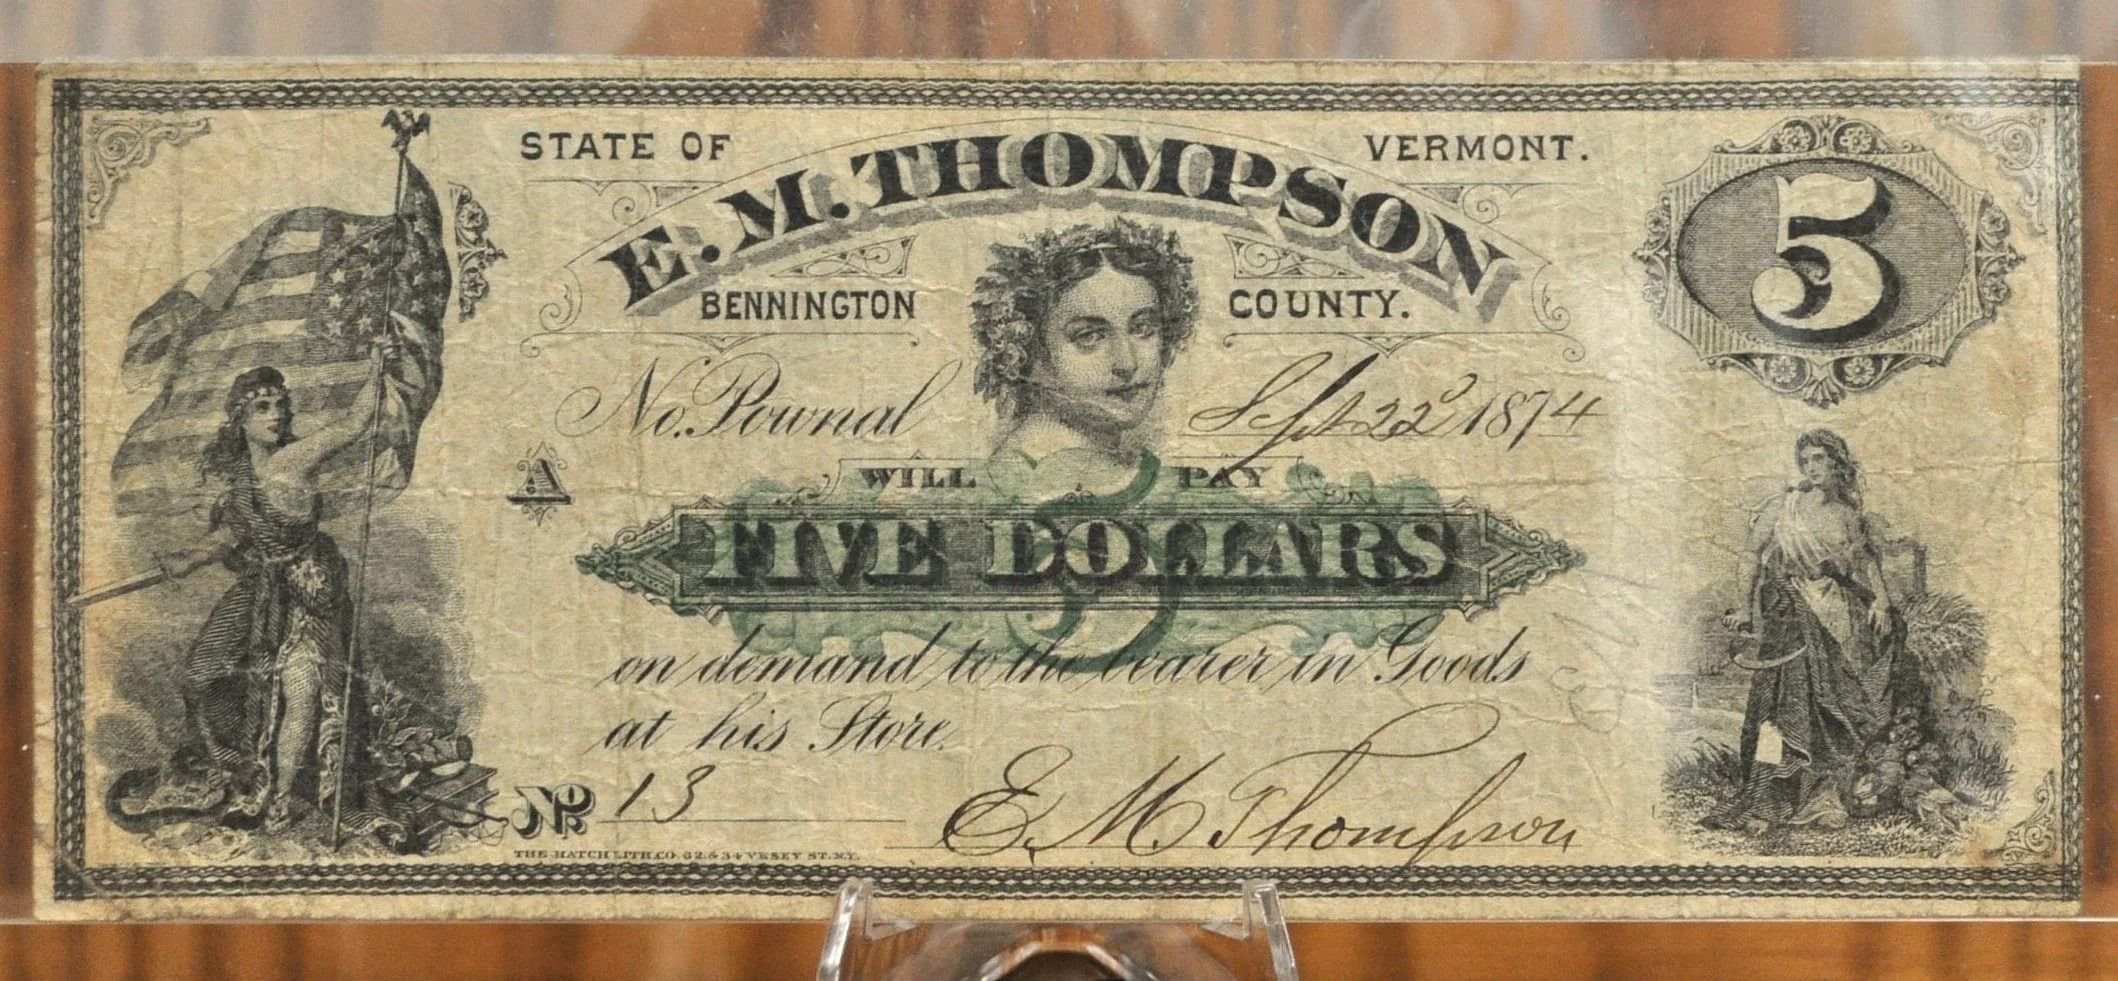 STATE OF VERMONT.
E. M. THOMPSON
5
BENNINGTON COUNTY.
No. Pownal Sept 22d 1874
A
WILL PAY
5
FIVE DOLLARS
on demand to the bearer in Goods
at his Store.
No 13 E. M. Thompson
THE HATCH LITH. CO. 32 & 34 VESEY ST. N.Y.